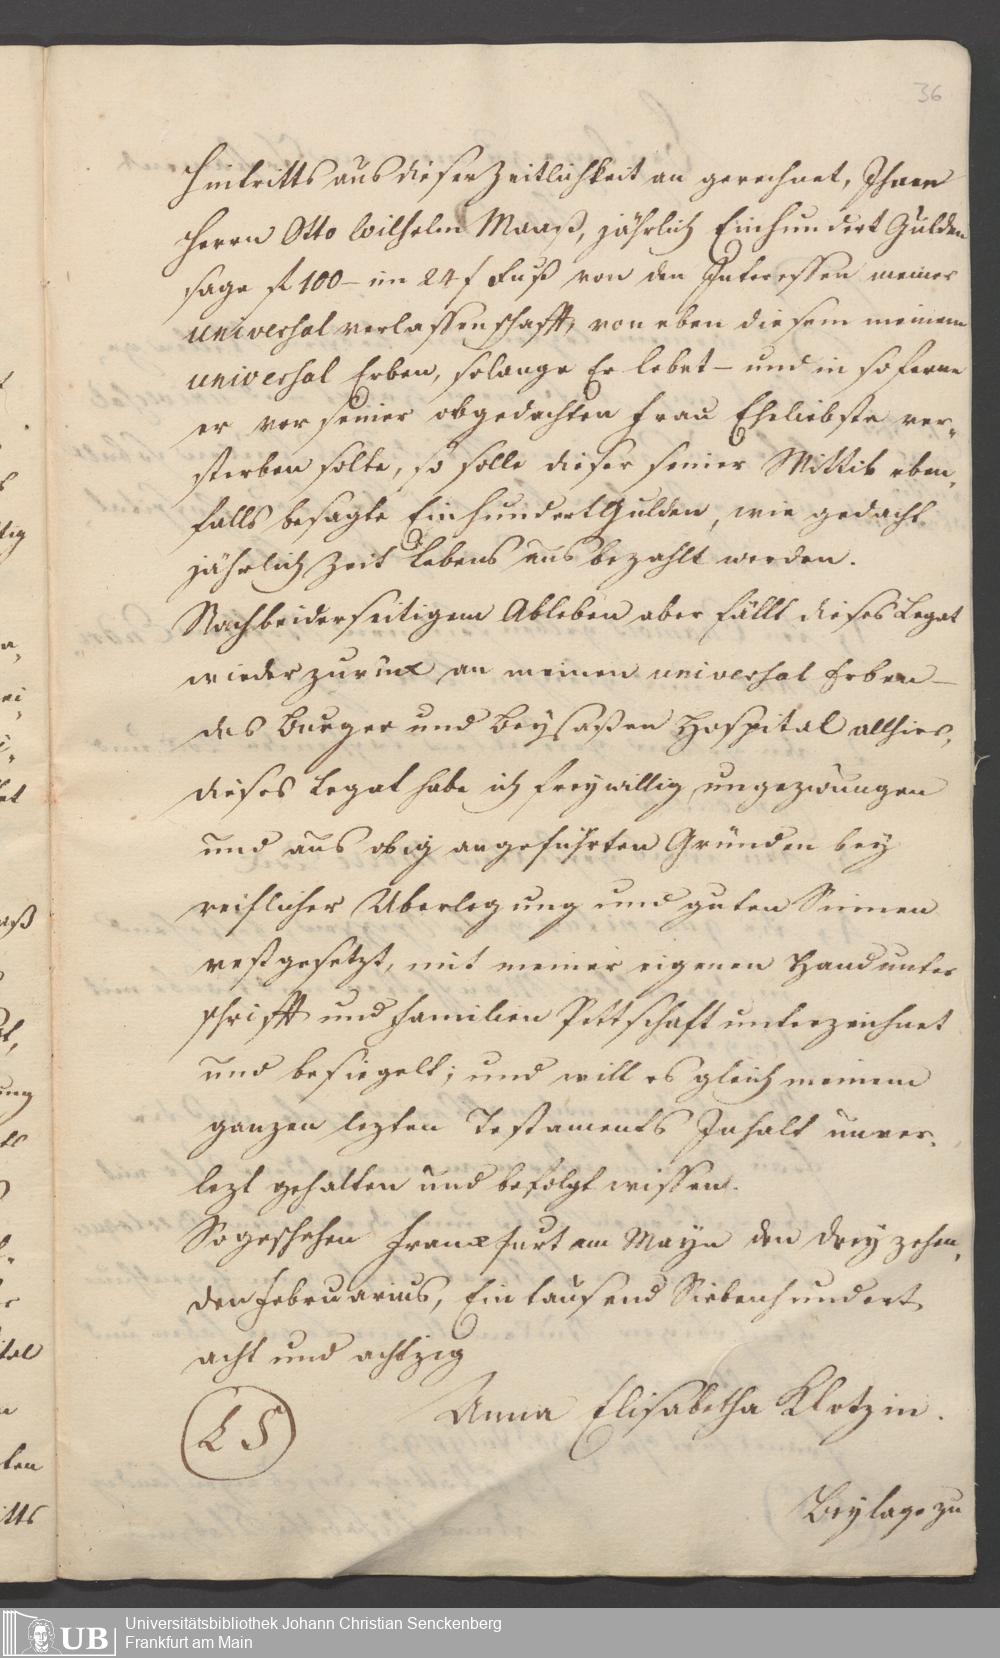 36
Hintritts aus dieser Zeitlichkeit an gerechnet, Ihnen
Herrn Otto Wilhelm Maaß, jährlich Einhundert Gulden
sage f 100 – im 24 f Fuß von den Interessen meiner
universal verlassenschafft, von eben diesem meinem
universal Erben, solange Er lebet – und in soferne
er vor seiner obgedachten Frau Eheliebste ver„
sterben solte, so solle dieser seiner Wittib eben„
falls besagte Einhundert Gulden, wie gedacht
jährlich Zeit Lebens ausbezahlt werden.
Nach beiderseitigem Ableben aber fällt dieses Legat
wieder zurück an meinen universal Erben –
das Burger und Beysaßen Hospital allhier,
dieses Legat habe ich freywillig ungezwungen
und aus obig angeführten Gründen bey
reiflicher Uberlegung und guten Sinnen
vestgesetzt, mit meiner eigenen Handunter
schrifft und Familien Pettschaft unterzeichnet
und besiegelt; und will es gleich meinem
ganzen lezten Testaments Inhalt unver„
lezt gehalten und befolgt wissen.
So geschehen Franckfurt am Mayn den dreyzehen„
den Februarius, Ein tausend Siebenhundert
acht und achtzig
L S
Anna Elisabetha Klotzin.
Beylage zu
UB
Universitätsbibliothek Johann Christian Senckenberg
Frankfurt am Main